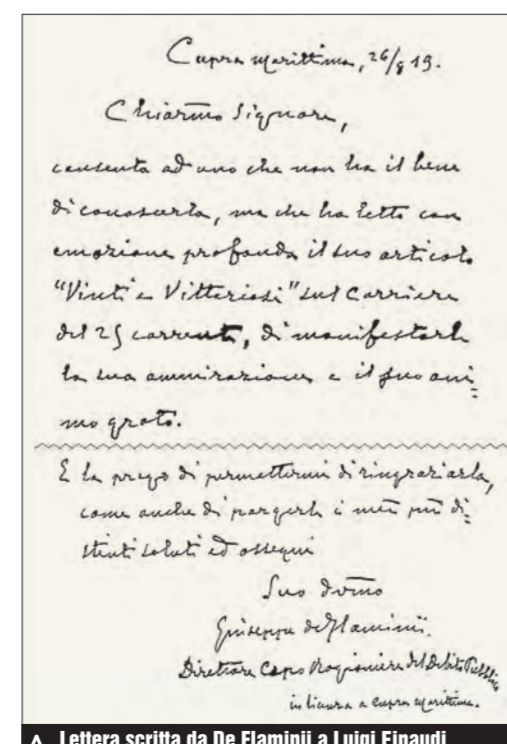 Cupra marittima, 26/8 19.
Chiarmo Signore,
consenta ad uno che non ha il bene
di conoscerla, ma che ha letto con
emozione profonda il suo articolo
"Vinti e Vittoriosi" sul Corriere
del 25 corrente, di manifestarle
la sua ammirazione e il suo ani=
mo grato.
E la prego di permettermi di ringraziarla,
come anche di porgerle i miei più di=
stinti saluti ed ossequi
Suo dvmo
Giuseppe de Flaminii.
Direttore Capo Ragioniere del Debito Pubblico
in licenza a Cupra marittima.
Lettera scritta da De Flaminii a Luigi Einaudi